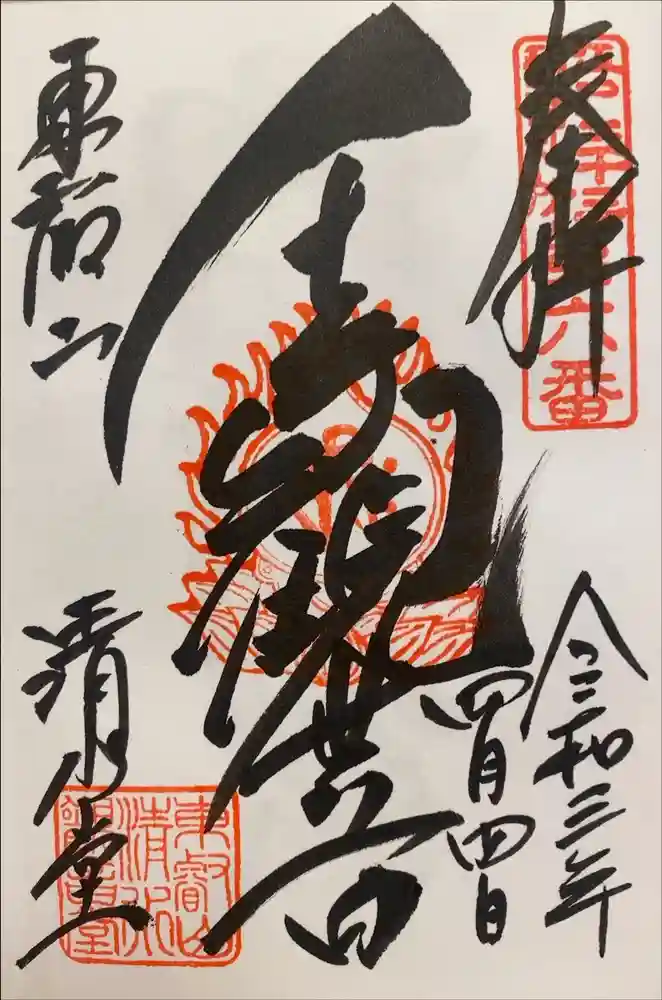 奉拝
六番
令和三年
四月四日
千手觀世音
東叡山
清水堂
東叡山
清水
觀音堂